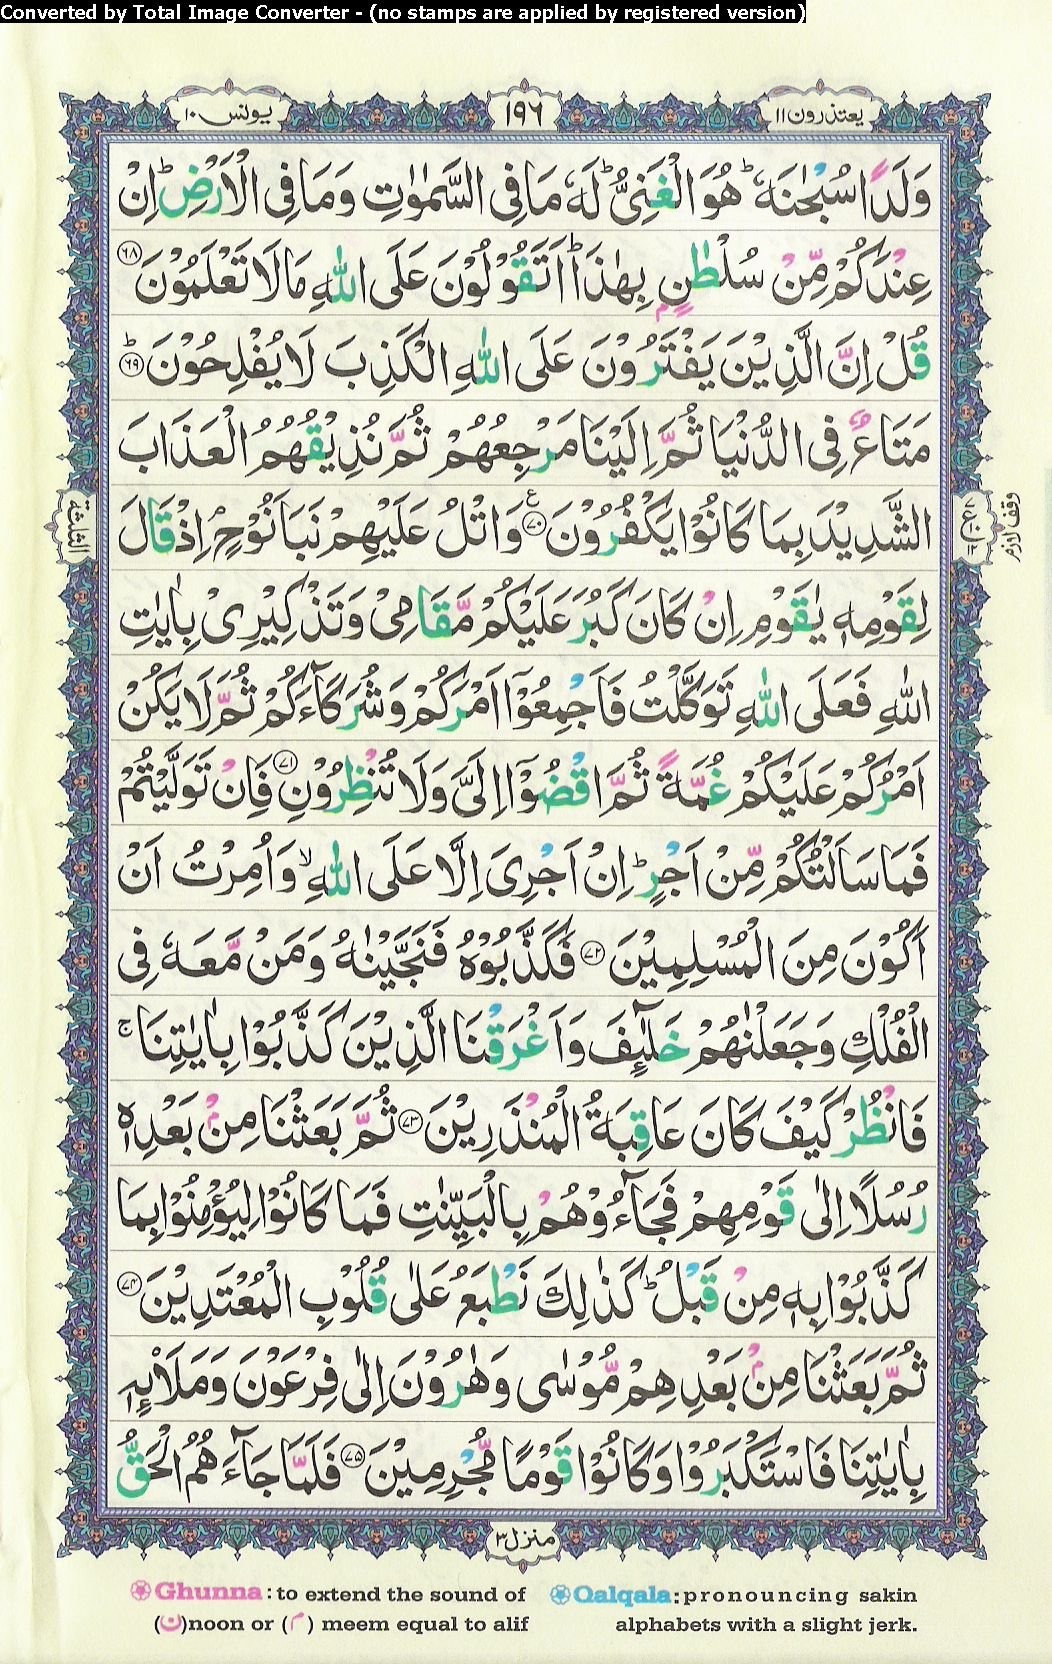 Converted by Total Image Converter - (no stamps are applied by registered version)
يعتذرون ١١
١٩٦
يونس ١٠
وَلَدًا سُبْحٰنَهٗ ؕ هُوَ الْغَنِىُّ ؕ لَهٗ مَا فِى السَّمٰوٰتِ وَمَا فِى الْاَرْضِ ؕ اِنْ
عِنْدَكُمْ مِّنْ سُلْطٰنٍۭ بِهٰذَا ؕ اَتَقُوْلُوْنَ عَلَى اللّٰهِ مَا لَا تَعْلَمُوْنَ ﴿۶۸﴾
قُلْ اِنَّ الَّذِيْنَ يَفْتَرُوْنَ عَلَى اللّٰهِ الْكَذِبَ لَا يُفْلِحُوْنَ ؕ ﴿۶۹﴾
مَتَاعٌ فِى الدُّنْيَا ثُمَّ اِلَيْنَا مَرْجِعُهُمْ ثُمَّ نُذِيْقُهُمُ الْعَذَابَ
الشَّدِيْدَ بِمَا كَانُوْا يَكْفُرُوْنَ ﴿۷۰﴾ ع وَاتْلُ عَلَيْهِمْ نَبَاَ نُوْحٍ ۘ اِذْ قَالَ
لِقَوْمِهٖ يٰقَوْمِ اِنْ كَانَ كَبُرَ عَلَيْكُمْ مَّقَامِىْ وَتَذْكِيْرِىْ بِاٰيٰتِ
اللّٰهِ فَعَلَى اللّٰهِ تَوَكَّلْتُ فَاَجْمِعُوْۤا اَمْرَكُمْ وَشُرَكَآءَكُمْ ثُمَّ لَا يَكُنْ
اَمْرُكُمْ عَلَيْكُمْ غُمَّةً ثُمَّ اقْضُوْۤا اِلَىَّ وَلَا تُنْظِرُوْنِ ﴿۷۱﴾ فَاِنْ تَوَلَّيْتُمْ
فَمَا سَاَلْتُكُمْ مِّنْ اَجْرٍ ؕ اِنْ اَجْرِىَ اِلَّا عَلَى اللّٰهِ ۙ وَاُمِرْتُ اَنْ
اَكُوْنَ مِنَ الْمُسْلِمِيْنَ ﴿۷۲﴾ فَكَذَّبُوْهُ فَنَجَّيْنٰهُ وَمَنْ مَّعَهٗ فِى
الْفُلْكِ وَجَعَلْنٰهُمْ خَلٰٓئِفَ وَاَغْرَقْنَا الَّذِيْنَ كَذَّبُوْا بِاٰيٰتِنَا ۚ
فَانْظُرْ كَيْفَ كَانَ عَاقِبَةُ الْمُنْذَرِيْنَ ﴿۷۳﴾ ثُمَّ بَعَثْنَا مِنْۢ بَعْدِهٖ
رُسُلًا اِلٰى قَوْمِهِمْ فَجَآءُوْهُمْ بِالْبَيِّنٰتِ فَمَا كَانُوْا لِيُؤْمِنُوْا بِمَا
كَذَّبُوْا بِهٖ مِنْ قَبْلُ ؕ كَذٰلِكَ نَطْبَعُ عَلٰى قُلُوْبِ الْمُعْتَدِيْنَ ﴿۷۴﴾
ثُمَّ بَعَثْنَا مِنْۢ بَعْدِهِمْ مُّوْسٰى وَهٰرُوْنَ اِلٰى فِرْعَوْنَ وَمَلَا۟ئِهٖ
بِاٰيٰتِنَا فَاسْتَكْبَرُوْا وَكَانُوْا قَوْمًا مُّجْرِمِيْنَ ﴿۷۵﴾ فَلَمَّا جَآءَهُمُ الْحَقُّ
وقف لازم
الثلثة
منزل ٣
Ghunna: to extend the sound of
(ن)noon or (م) meem equal to alif
Qalqala: pronouncing sakin
alphabets with a slight jerk.